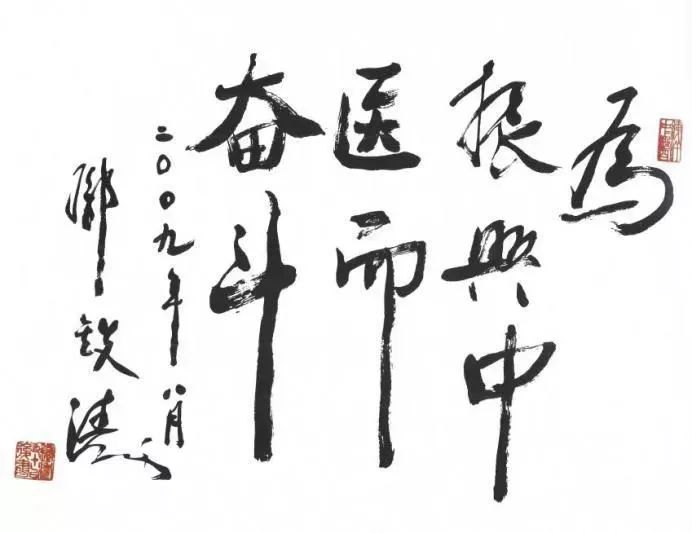 為
振興中
医而
奋斗
二〇〇九年八月
鄧鉄涛